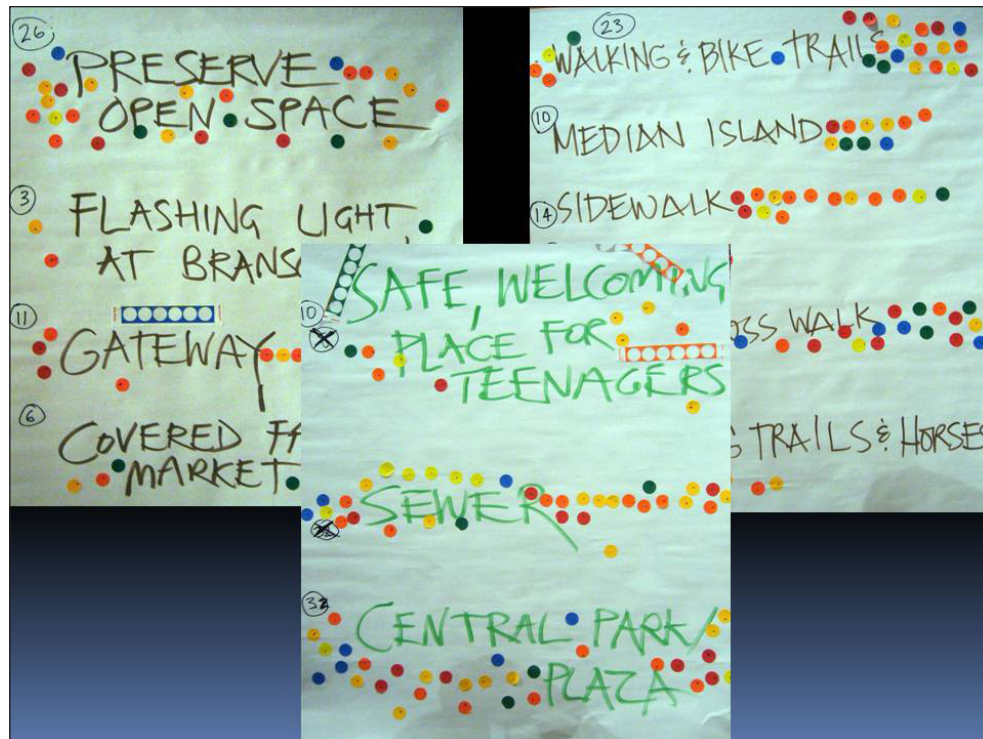 26
PRESERVE
OPEN SPACE
3
FLASHING LIGHT
AT
11
GATEWAY
6
COVERED
MARKET
23
WALKING & BIKE TRAILS
10
MEDIAN ISLAND
14
SIDEWALK
WALK
TRAILS & HORSES
10
SAFE, WELCOMING
PLACE FOR
TEENAGERS
SEWER
32
CENTRAL PARK/
PLAZA